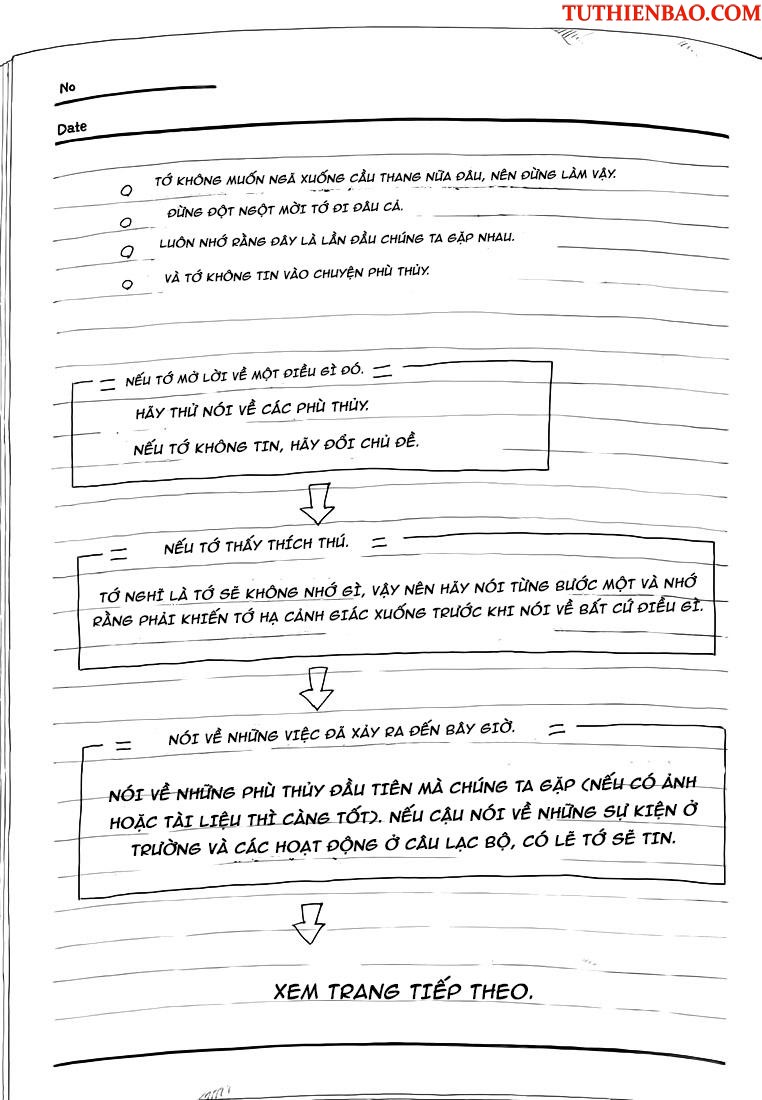 TUTHIENBAO.COM
No
Date
TỚ KHÔNG MUỐN NGÃ XUỐNG CẦU THANG NỮA ĐÂU, NÊN ĐỪNG LÀM VẬY.
ĐỪNG ĐỘT NGỘT MỜI TỚ ĐI ĐÂU CẢ.
LUÔN NHỚ RẰNG ĐÂY LÀ LẦN ĐẦU CHÚNG TA GẶP NHAU.
VÀ TỚ KHÔNG TIN VÀO CHUYỆN PHÙ THỦY.
NẾU TỚ MỞ LỜI VỀ MỘT ĐIỀU GÌ ĐÓ.
HÃY THỬ NÓI VỀ CÁC PHÙ THỦY.
NẾU TỚ KHÔNG TIN, HÃY ĐỔI CHỦ ĐỀ.
NẾU TỚ THẤY THÍCH THÚ.
TỚ NGHĨ LÀ TỚ SẼ KHÔNG NHỚ GÌ, VẬY NÊN HÃY NÓI TỪNG BƯỚC MỘT VÀ NHỚ
RẰNG PHẢI KHIẾN TỚ HẠ CẢNH GIÁC XUỐNG TRƯỚC KHI NÓI VỀ BẤT CỨ ĐIỀU GÌ.
NÓI VỀ NHỮNG VIỆC ĐÃ XẢY RA ĐẾN BÂY GIỜ.
NÓI VỀ NHỮNG PHÙ THỦY ĐẦU TIÊN MÀ CHÚNG TA GẶP (NẾU CÓ ẢNH
HOẶC TÀI LIỆU THÌ CÀNG TỐT). NẾU CẬU NÓI VỀ NHỮNG SỰ KIỆN Ở
TRƯỜNG VÀ CÁC HOẠT ĐỘNG Ở CÂU LẠC BỘ, CÓ LẼ TỚ SẼ TIN.
XEM TRANG TIẾP THEO.